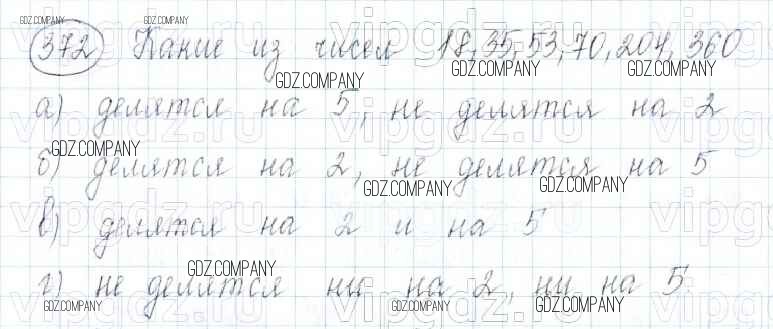 GDZ.COMPANY GDZ.COMPANY
372 Какие из чисел 18, 35, 53, 70, 204, 360
GDZ.COMPANY GDZ.COMPANY GDZ.COMPANY
а) делятся на 5, не делятся на 2
GDZ.COMPANY
б) делятся на 2, не делятся на 5
GDZ.COMPANY GDZ.COMPANY
в) делятся на 2 и на 5
GDZ.COMPANY
г) не делятся ни на 2, ни на 5.
GDZ.COMPANY GDZ.COMPANY GDZ.COMPANY
vipgdz.ru